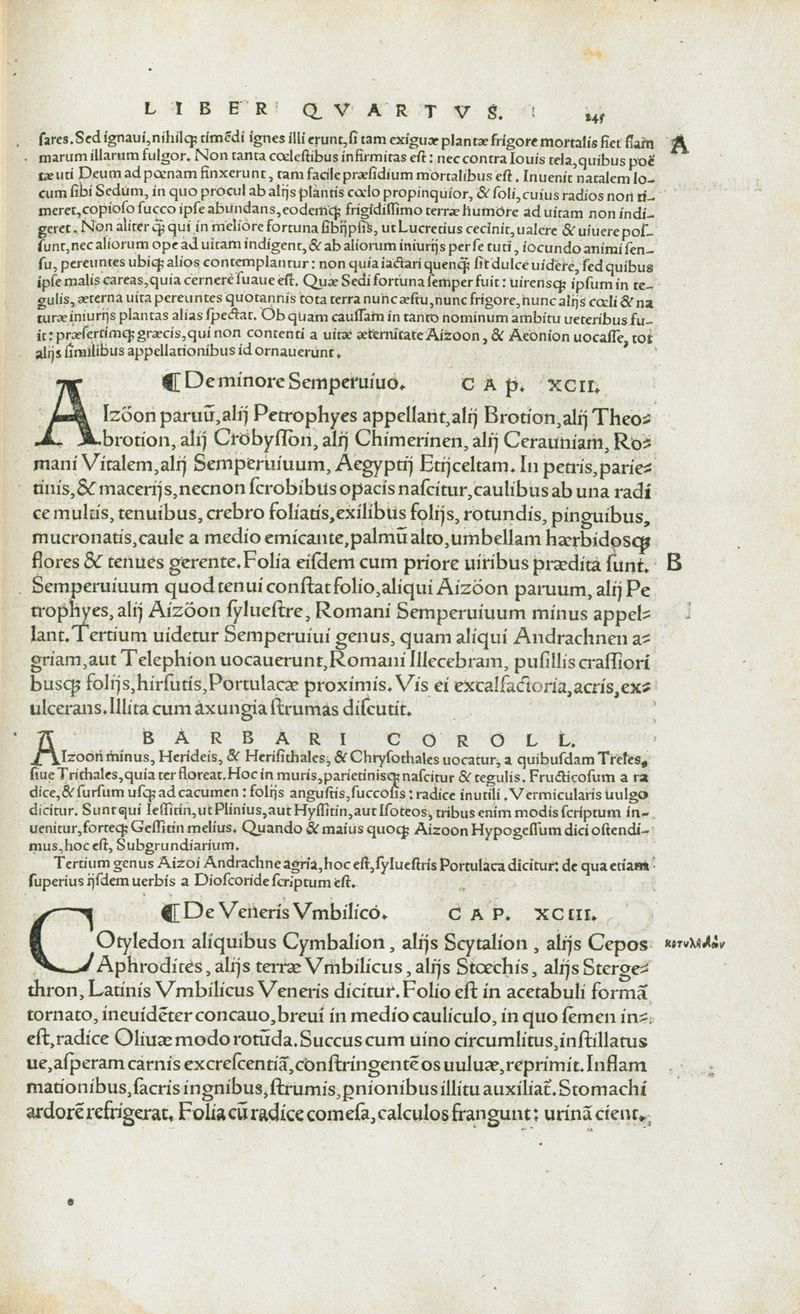 LIBER QVARTVS. 245
sares. Sed ignaui, nihilq; timẽdi ignes illi erunt, si tam exiguæ plantæ frigore mortalis fiet flam
A
marum illarum fulgor. Non tanta cœlestibus infirmitas est: nec contra Iouis tela, quibus poë
tæ uti Deum ad pœnam finxerunt, tam facile præsidium mortalibus est. Inuenit natalem lo-
cum sibi Sedum, in quo procul ab alijs plantis cœlo propinquior, & soli, cuius radios non ti-
meret, copioso succo ipse abundans, eodemq; frigidissimo terræ humore ad uitam non indi-
geret. Non aliter q̃; qui in meliore fortuna sibijpsis, ut Lucretius cecinit, ualere & uiuere pos-
sunt, nec aliorum ope ad uitam indigent, & ab aliorum iniurijs per se tuti, iocundo animi sen-
su, pereuntes ubiq; alios contemplantur: non quia iactari quenq̃; sit dulce uidere, sed quibus
ipse malis careas, quia cernere suaue est. Quæ Sedi fortuna semper fuit: uirensq; ipsum in te-
gulis, æterna uita pereuntes quotannis tota terra nunc æstu, nunc frigore, nunc alijs cœli & na
turæ iniurijs plantas alias spectat. Ob quam caussam in tanto nominum ambitu ueteribus fu-
it: præsertimq; græcis, qui non contenti a uitæ æternitate Aizoon, & Aeonion uocasse, tot
alijs similibus appellationibus id ornauerunt.
¶ De minore Semperuiuo. CAP. XCII.
AIzöon paruũ, alij Petrophyes appellant, alij Brotion, alij Theo-
brotion, alij Crobysson, alij Chimerinen, alij Cerauniam, Ro-
mani Vitalem, alij Semperuiuum, Aegyptij Etijceltam. In petris, parie-
tinis, & macerijs, necnon scrobibus opacis nascitur, caulibus ab una radi
ce multis, tenuibus, crebro foliatis, exilibus folijs, rotundis, pinguibus,
mucronatis, caule a medio emicante, palmũ alto, umbellam hærbidosq;
flores & tenues gerente. Folia eisdem cum priore uiribus prædita sunt.
B
Semperuiuum quod tenui constat folio, aliqui Aizöon paruum, alij Pe
trophyes, alij Aizöon syluestre, Romani Semperuiuum minus appel-
lant. Tertium uidetur Semperuiui genus, quam aliqui Andrachnen a-
griam, aut Telephion uocauerunt, Romani Illecebram, pusillis crassiori
busq; folijs, hirsutis, Portulacæ proximis. Vis ei excalfactoria, acris, ex-
ulcerans. Illita cum axungia strumas discutit.
BARBARI COROLL.
AIzoon minus, Herideis, & Herisithales, & Chrysothales uocatur, a quibusdam Tretes,
siue Trithales, quia ter floreat. Hoc in muris, parietinisq; nascitur & tegulis. Fructicosum a ra
dice, & sursum usq; ad cacumen: folijs angustis, succosis: radice inutili. Vermicularis uulgo
dicitur. Sunt qui Iessitin, ut Plinius, aut Hyssitin, aut Isoteos, tribus enim modis scriptum in-
uenitur, forteq; Gessitin melius. Quando & maius quoq; Aizoon Hypogessum dici ostendi-
mus, hoc est, Subgrundiarium.
Tertium genus Aizoi Andrachne agria, hoc est, syluestris Portulaca dicitur: de qua etiam
superius ijsdem uerbis a Dioscoride scriptum est.
¶ De Veneris Vmbilico. CAP. XCIII.
COtyledon aliquibus Cymbalion, alijs Scytalion, alijs Cepos
κοτυληδών
Aphrodites, alijs terræ Vmbilicus, alijs Stœchis, alijs Sterge-
thron, Latinis Vmbilicus Veneris dicitur. Folio est in acetabuli formã
tornato, ineuidẽter concauo, breui in medio cauliculo, in quo semen in-
est, radice Oliuæ modo rotũda. Succus cum uino circumlitus, instillatus
ue, asperam carnis excrescentiã, constringentẽ os uuluæ, reprimit. Inflam
mationibus, sacris ingnibus, strumis, pnionibus illitu auxiliat̃. Stomachi
ardorẽ refrigerat. Folia cũ radice comesa, calculos frangunt: urinã cient.